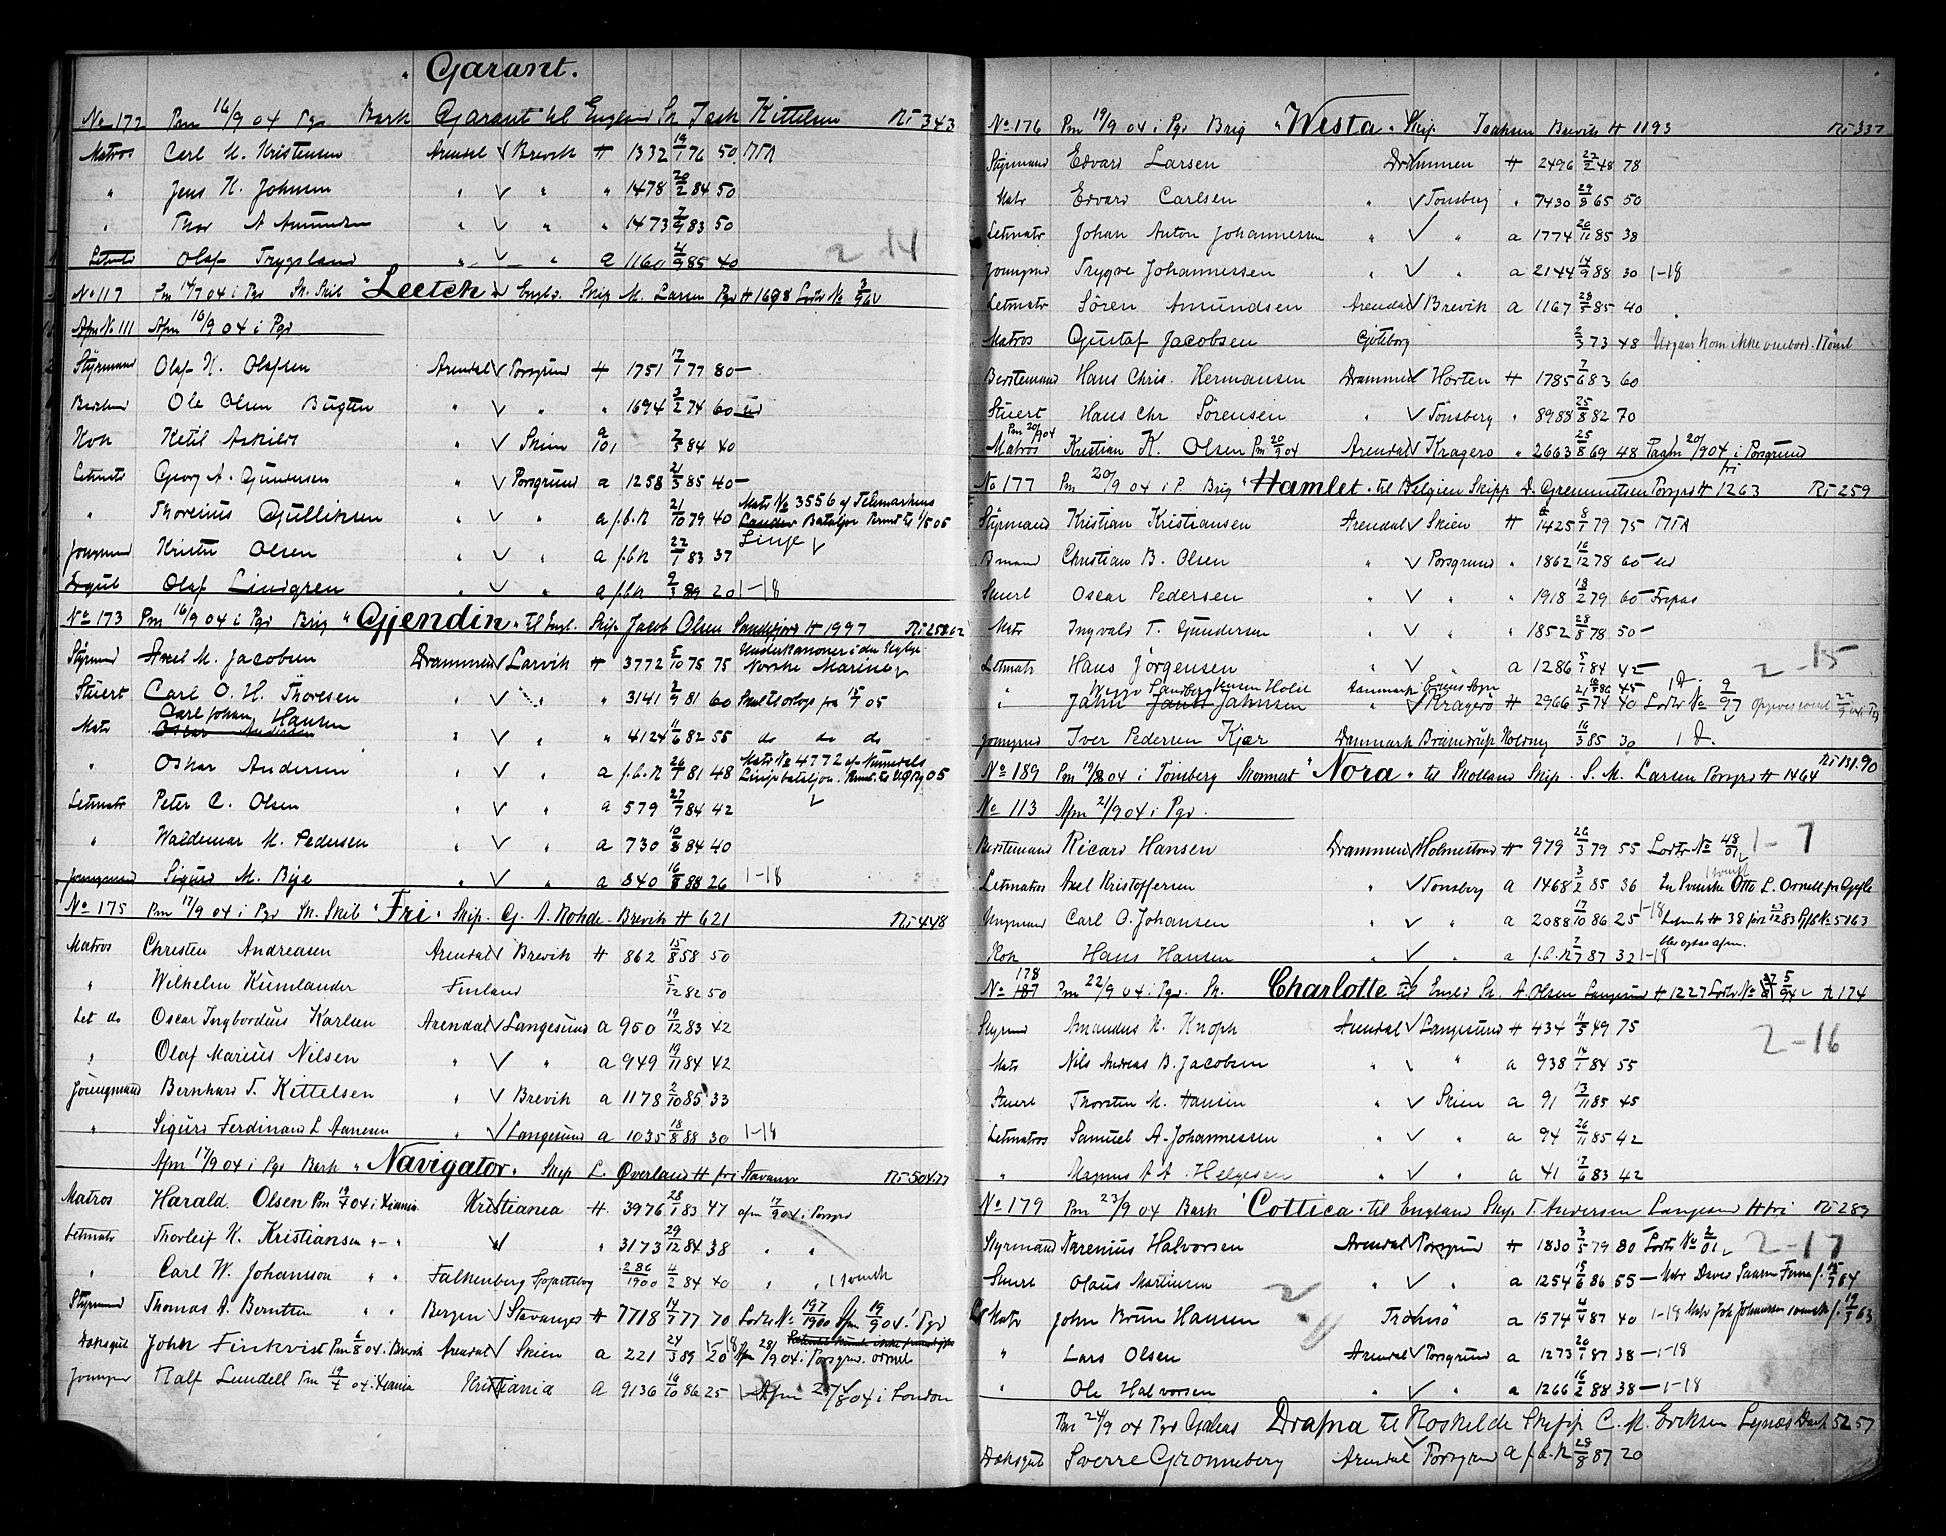 Garant.
No 172 Pm 16/9 04 Pgr Bark Garant til England Sk Isak Kittelsen Rt 343
Matros Carl N. Kristensen Arendal √ Brevik H 1332 19/1 76 50
" Jens N. Johnsen " √ " " 1478 20/2 84 50
" Thor A Amundsen " √ " " 1473 7/9 83 50
Letmatr Olaf Trygsland " √ " a 1160 4/9 85 40
2-14
No 117 Pm 14/7 04 i Pgr Sk. Skib "Leetch" Engld. Skip M. Larsen Pgr H 1698 Lodts No 3/96 √
Afm No 111 Afm 16/9 04 i Pgr
Styrmand Olaf N. Olafsen Arendal √ Porsgrund H 1751 17/1 77 80 —
Ole Olsen Bugten " √ " " 1694 3/2 74 60 ud
Kok Ketil Askilds " √ Skien 9/101 7/3 84 40
Letmatr Georg A. Gundersen " √ Porsgrund a 1258 21/3 85 40 —
" Thorenius Gulliksen " √ " a f.b.N 21/10 79 40 Matr No 3556 af Telemarkens Bataljon Linje √
Jongmand Krister Olsen " √ " a f.b.N 22/1 83 37
Olaf Lindgren " √ " a f.b.N 9/3 89 20 1-18
No 173 Pm 16/9 04 i Pgr Brig "Gjendin" til Engl. Skip Jacob Olsen Sandefjord H 1997
Styrmd Axel M. Jacobsen Drammen √ Larvik H 3772 5/10 75 75 Underkanoner i den Norske Marine √
Stuert Carl O. H. Thoresen " √ " " 3141 2/9 81 60 Skal til orlogs fra 15/7 05
Matr Carl Johan Hansen " √ " " 4124 11/6 82 55 do do do
" Oskar Andersen " √ " a f.b.N 26/1 81 48 Matr No 4772 af Numedals Linjebataljon. 05
Letmatr Peter C. Olsen " √ " a 579 27/7 84 42 √
" Waldemar M. Pedersen " √ " a 730 10/8 84 40
Jongmand Sigurd M. Bye " √ " a 840 16/8 88 26 1-18
No 175 Pm 17/9 04 i Pgr Sk. Skib "Fri" Skip. G. A. Rohde Brevik H 621 Rt 448
Matros Christen Andreasen Arendal √ Brevik H 862 15/8 58 50
" Wilhelm Kumlander Finland 5/12 82 50
Let do Oscar Ingbordeus Karlsen Arendal √ Langesund a 950 19/12 83 42
" Olaf Marius Nilsen " √ " a 949 19/11 84 42
Jongmand Bernhard T. Kittelsen " √ Brevik a 1178 2/10 85 33
" Sigurd Ferdinand L Aanesen " √ Langesund a 1035 18/8 88 30 1-18
Afm 17/9 04 i Pgr Bark "Navigator" Skip L. Øverland H fri Stavanger Rt 504.77
Matros Harald Olsen Pm 19/4 04 i Xiania Kristiania H 3976 28/1 83 47 afm 17/9 04 i Porsgrd
Letmatr Thorleif N. Kristiansen " - " √ " 3173 29/12 84 38 " "
" Carl W. Johansson " " Falkenberg 286/1900 4/2 84 40 " " 1 svensk
Styrmd Thomas A. Berntsen " " Bergen √ Stavanger H 7718 14/7 77 70 Lodts No 197/1900 Afm 19/9 04 i Pgr
Dæksgut John Finkvist Pm 6/8 04 i Brevik Arendal √ Skien a 221 24/3 89 20 1-18 Afm 28/9 04 i Porsgrd.
Jongmd Ralf Lundell Pm 19/4 04 i Xiania Kristiania a 9136 16/10 86 25 Afm 25/8 04 i London
No 176 Pm 19/9 04 i Pgr Brig "Westa" Skip. Isaksen Brevik H 1193 Rt 337
Styrmand Edvard Larsen Drammen H 2496 27/2 48 78
Matr Edvard Carlsen " √ Tønsberg " 7430 29/8 65 50
Letmatr Johan Anton Johannessen " √ " a 1774 20/11 85 38
Jongmd Trygve Johannessen " √ " a 2144 14/9 88 30 1-18
Letmatr Søren Amundsen Arendal √ Brevik a 1167 28/5 85 40
Matros Gustaf Jacobsen Göteborg 2/3 73 48 Udgaar kom ikke ombord. Rømt
Bestemand Hans Chris. Hermansen Drammen √ Horten H 1785 7/6 83 60
Stuert Hans Chr Sörensen " √ Tönsberg " 8988 25/8 82 70
Pm 20/9 04
Matros Kristian K. Olsen Pm 20/9 04 Arendal √ Kragerø " 2663 25/8 69 48 Paam 20/9 04 i Porsgrund
No 177 Pm 20/9 04 i P. Brig "Hamlet" til Belgien Skipp D. Gremmertsen Porsgrd H 1263 Rt 259
Styrmand Kristian Kristiansen Arendal √ Skien H 1425 8/1 79 75
Bmand Christian B. Olsen " √ Porsgrund " 1862 16/12 78 60 — ud
Stuert Oscar Pedersen " √ " " 1918 18/2 79 60 — Frepas
Matr Ingvald T. Gundersen " √ " " 1852 28/8 78 50 —
Letmatr Hans Jörgensen " √ " a 1286 5/1 84 45 —
2-15
" Jahn Jahnsen " √ Kragerö H 2966 21/5 74 40 Lodts No 9/97
Jongmd Iver Pedersen Kjær Danmark Bramdrup Kolding 16/3 85 30 1 D.
No 189 Pm 19/8 04 i Tønsberg Skonnert "Nora" til Skotland Skip. S. M. Larsen Porsgrd H 1464 Rt 181.90
No 113 Afm 21/9 04 i Pgr.
Bestemand Ricard Hansen Drammen √ Holmestrand H 979 26/3 79 55 Lodts No 48/01 √ 1-7
Letmatros Axel Kristoffersen " √ Tønsberg a 1468 3/2 85 36 En Svenske Otto L. Ornell fra Gefle
Carl O. Johansen " √ " a 2088 17/10 86 25 1-18
Kok Hans Hansen " √ " a f.b.N 7/7 87 32 1-18
No 178 Pm 22/9 04 i Pgr. Sk. Charlotte til Engld Sk. A. Olsen Langesund H 1227 Lodts No √ R 174
Styrmd Amandus N. Knoph Arendal √ Langesund H 434 11/5 49 75
2-16
Matr Nils Andreas B. Jacobsen " √ " a 938 14/1 84 55
Stuert Thorsten M. Hansen " √ Skien a 91 13/11 85 45
Letmatros Samuel A. Johannessen " √ " a 94 26/11 85 42
" Magnus A A. Helgesen " √ " a 41 17/6 83 42
No 179 Pm 23/9 04 Bark "Cottica" til England Skip T. Andersen Langesund H fri Rt 289
Styrmand Narenius Halvorsen Arendal √ Porsgrund H 1830 3/5 79 80 Lodts No 2/01 √ 2-17
Stuert Olaus Martinsen " √ " a 1254 15/6 86 55 —
Matr John Brun Hansen Tromsø a 1574 4/4 87 40 1-18
" Lars Olsen Arendal √ Porsgrund a 1273 20/1 87 38 — 1-18
" Ole Halvorsen " √ " a 1266 16/2 88 38 — 1-18
Pm 24/9 04 Pgr Galeas Drafna til Roskilde Skipp C. M. Eriksen Lynæs Dansk 52.57
Dæksgut Sverre Gronneberg Arendal √ Porsgrund a f.b.N 28/8 87 20